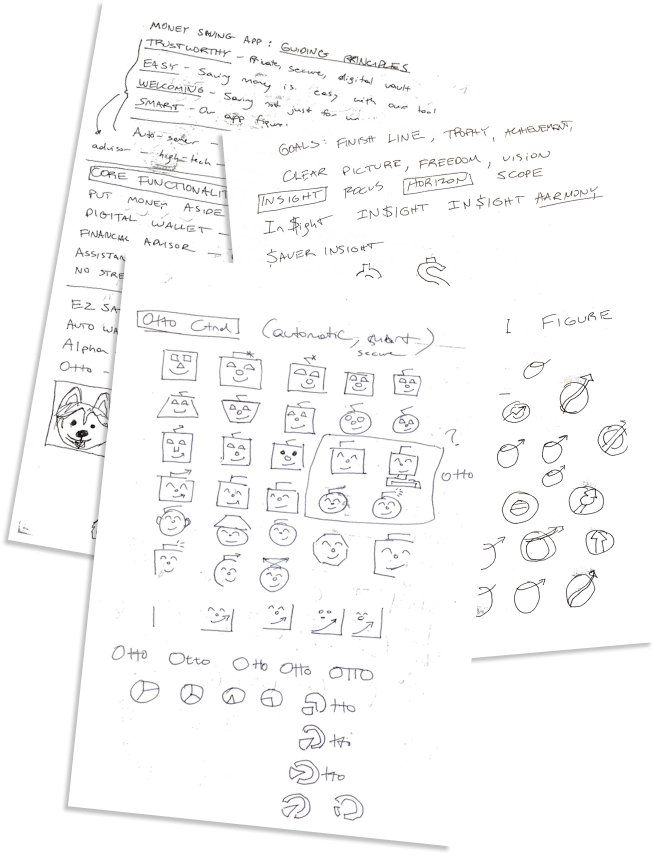 MONEY SAVING APP: GUIDING PRINCIPLES
TRUSTWORTHY - Private, secure, digital vault
EASY - Saving money is easy with our tool
WELCOMING - Saving not just for
SMART - Our app figures
Auto-saver -
advisor - high-tech -
CORE FUNCTIONALIT
PUT MONEY ASIDE
DIGITAL WALLET -
FINANCIAL ADVISOR -
ASSISTAN
NO STRE
EZ SA
AUTO WA
Alpha
Otto -
GOALS: FINISH LINE, TROPHY, ACHIEVEMENT,
CLEAR PICTURE, FREEDOM, VISION
INSIGHT FOCUS HORIZON SCOPE
In$ight IN$IGHT IN$IGHT HARMONY
$AVER INSIGHT
I FIGURE
Otto Ctnd (automatic, smart)
secure
?
Otto
Otto Otto Otto Otto OTTO
tto
tto
tto